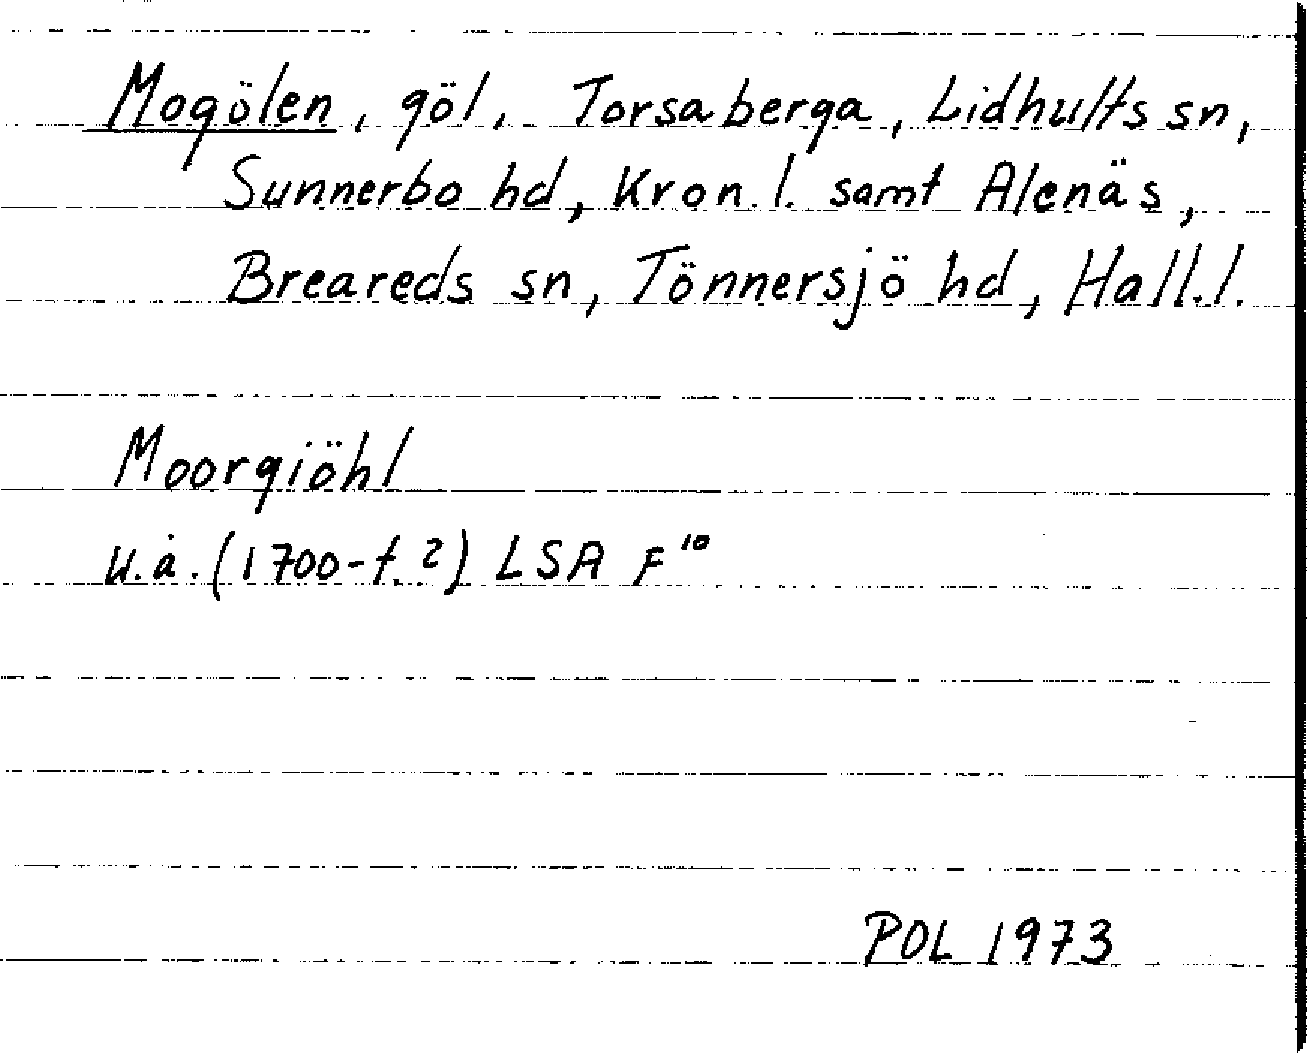 Mogölen, göl, Torsaberga, Lidhults sn,
Sunnerbo hd, Kron.l. samt Alenäs,
Breareds sn, Tönnersjö hd, Hall.l.
Moorgiöhl
u.å. (1700-t.?) LSA F¹⁰
POL 1973